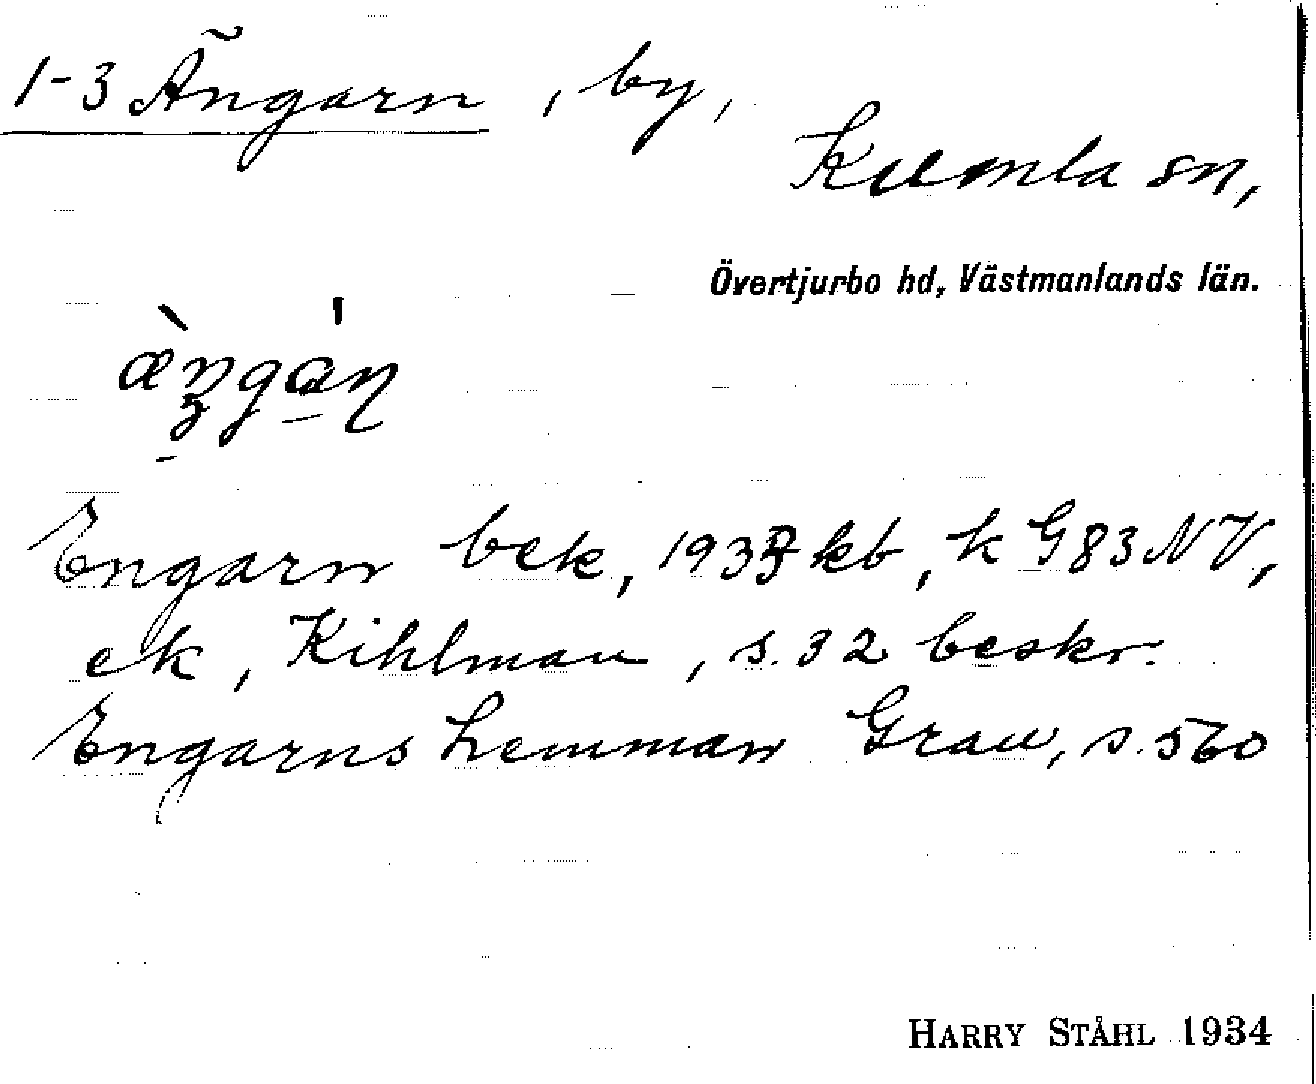 1-3 Ängarn, by,
Kumla sn,
Övertjurbo hd, Västmanlands län.
Engarn bek, kb, k G83 NV,
ek, Kihlman, s. 32 beskr.
Engarns hemman Grau, s. 560
HARRY STÅHL 1934